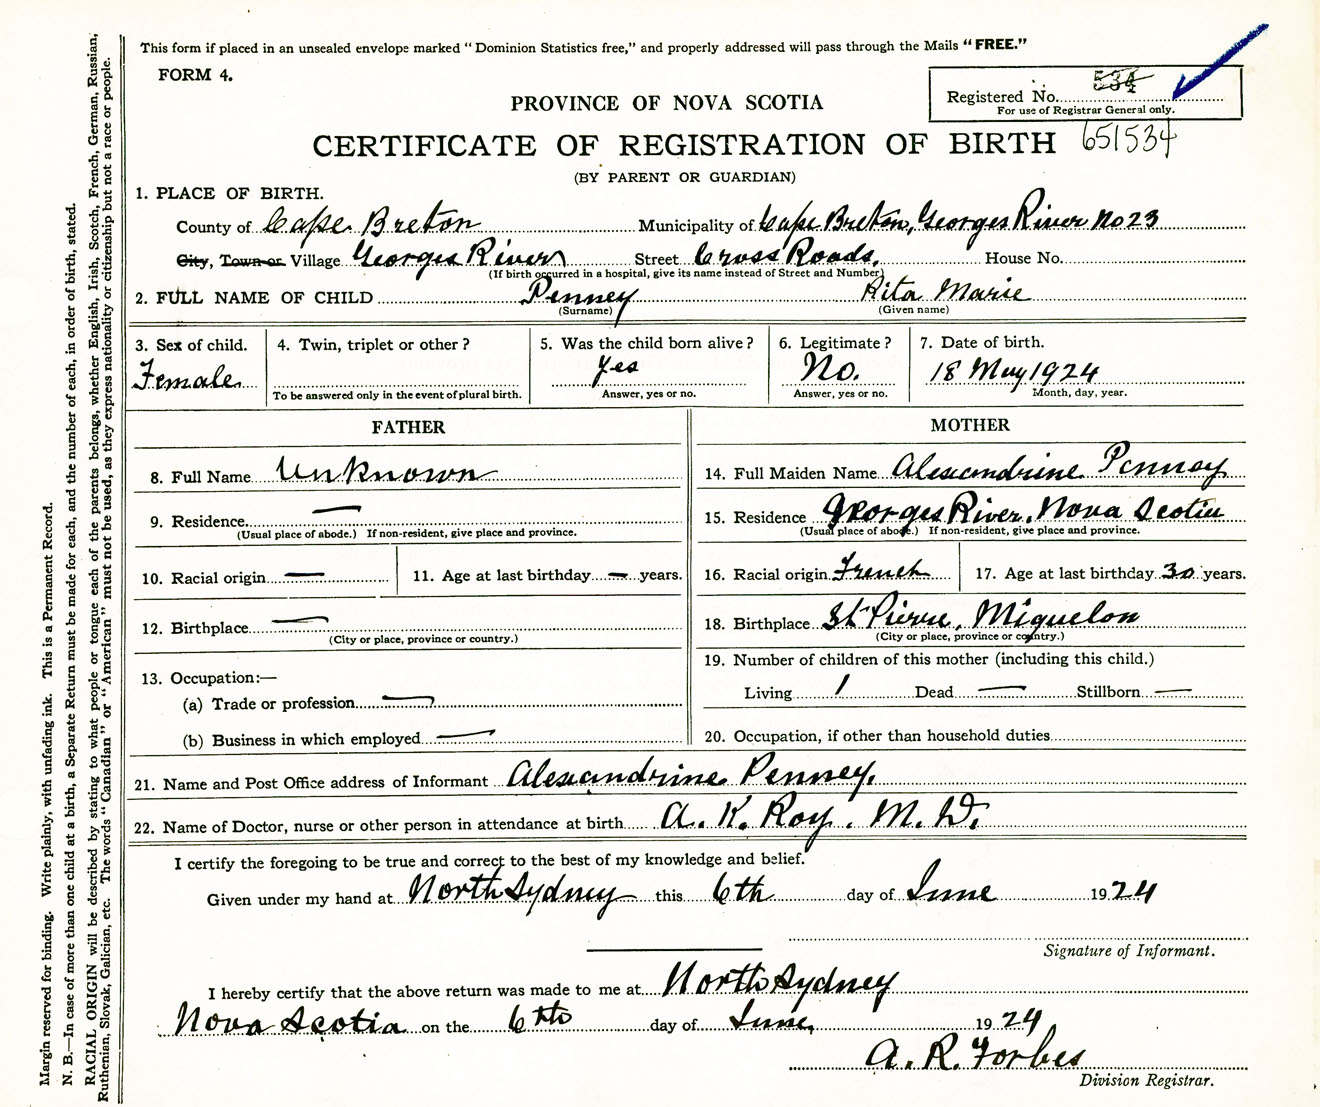 This form if placed in an unsealed envelope marked "Dominion Statistics free," and properly addressed will pass through the Mails "FREE."
FORM 4.
534
Registered No.
For use of Registrar General only.
PROVINCE OF NOVA SCOTIA
CERTIFICATE OF REGISTRATION OF BIRTH 651534
(BY PARENT OR GUARDIAN)
1. PLACE OF BIRTH.
County of Cape Breton Municipality of Cape Breton, Georges River No 23
City, Town or Village Georges River Street Cross Roads. House No.
(If birth occurred in a hospital, give its name instead of Street and Number)
2. FULL NAME OF CHILD Penney Rita Marie
(Surname) (Given name)
3. Sex of child. 4. Twin, triplet or other? 5. Was the child born alive? 6. Legitimate? 7. Date of birth.
Female Yes No. 18 May 1924
To be answered only in the event of plural birth. Answer, yes or no. Answer, yes or no. Month, day, year.
FATHER
8. Full Name Unknown
9. Residence —
(Usual place of abode.) If non-resident, give place and province.
10. Racial origin — 11. Age at last birthday — years.
12. Birthplace —
(City or place, province or country.)
13. Occupation:—
(a) Trade or profession —
(b) Business in which employed —
MOTHER
14. Full Maiden Name Alexandrine Penney
15. Residence Georges River, Nova Scotia
(Usual place of abode.) If non-resident, give place and province.
16. Racial origin French 17. Age at last birthday 30 years.
18. Birthplace St Pierre, Miquelon
(City or place, province or country.)
19. Number of children of this mother (including this child.)
Living 1 Dead — Stillborn —
20. Occupation, if other than household duties
21. Name and Post Office address of Informant Alexandrine Penney.
22. Name of Doctor, nurse or other person in attendance at birth A. K. Roy. M. D.
I certify the foregoing to be true and correct to the best of my knowledge and belief.
Given under my hand at North Sydney this 6th day of June 1924
Signature of Informant.
I hereby certify that the above return was made to me at North Sydney
Nova Scotia on the 6th day of June, 1924
A. R. Forbes
Division Registrar.
Margin reserved for binding. Write plainly, with unfading ink. This is a Permanent Record.
N. B.—In case of more than one child at a birth, a Separate Return must be made for each, and the number of each, in order of birth, stated.
RACIAL ORIGIN will be described by stating to what people or tongue each of the parents belongs, whether English, Irish, Scotch, French, German, Russian,
Ruthenian, Slovak, Galician, etc. The words "Canadian" or "American" must not be used, as they express nationality or citizenship but not a race or people.